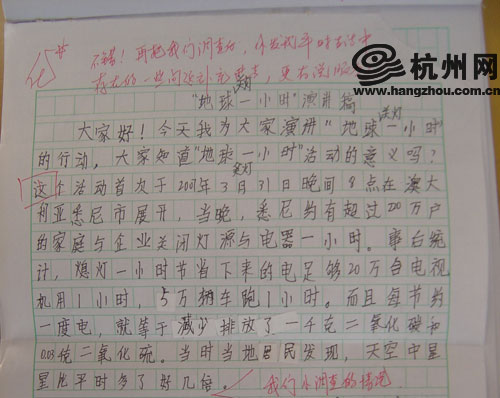 优
不错！再把我们调查的，你发现平时生活中
存在的一些问题
杭州网
www.hangzhou.com.cn
关灯
"地球一小时"演讲稿
关灯
大家好！今天我为大家演讲"地球一小时"
的行动，大家知道"地球一小时"活动的意义吗？
关灯
这个活动首次于2007年3月31日晚间8点在澳大
利亚悉尼市展开，当晚，悉尼约有超过220万户
的家庭与企业关闭灯源与电器一小时。事后统
计，熄灯一小时节省下来的电足够20万台电视
机用1小时，5万辆车跑1小时。而且每节约
一度电，就等于减少排放了一千克二氧化碳和
0.03 二氧化硫。当时当地居民发现，天空中星
星比平时多了好几倍。
我们小调查的情况